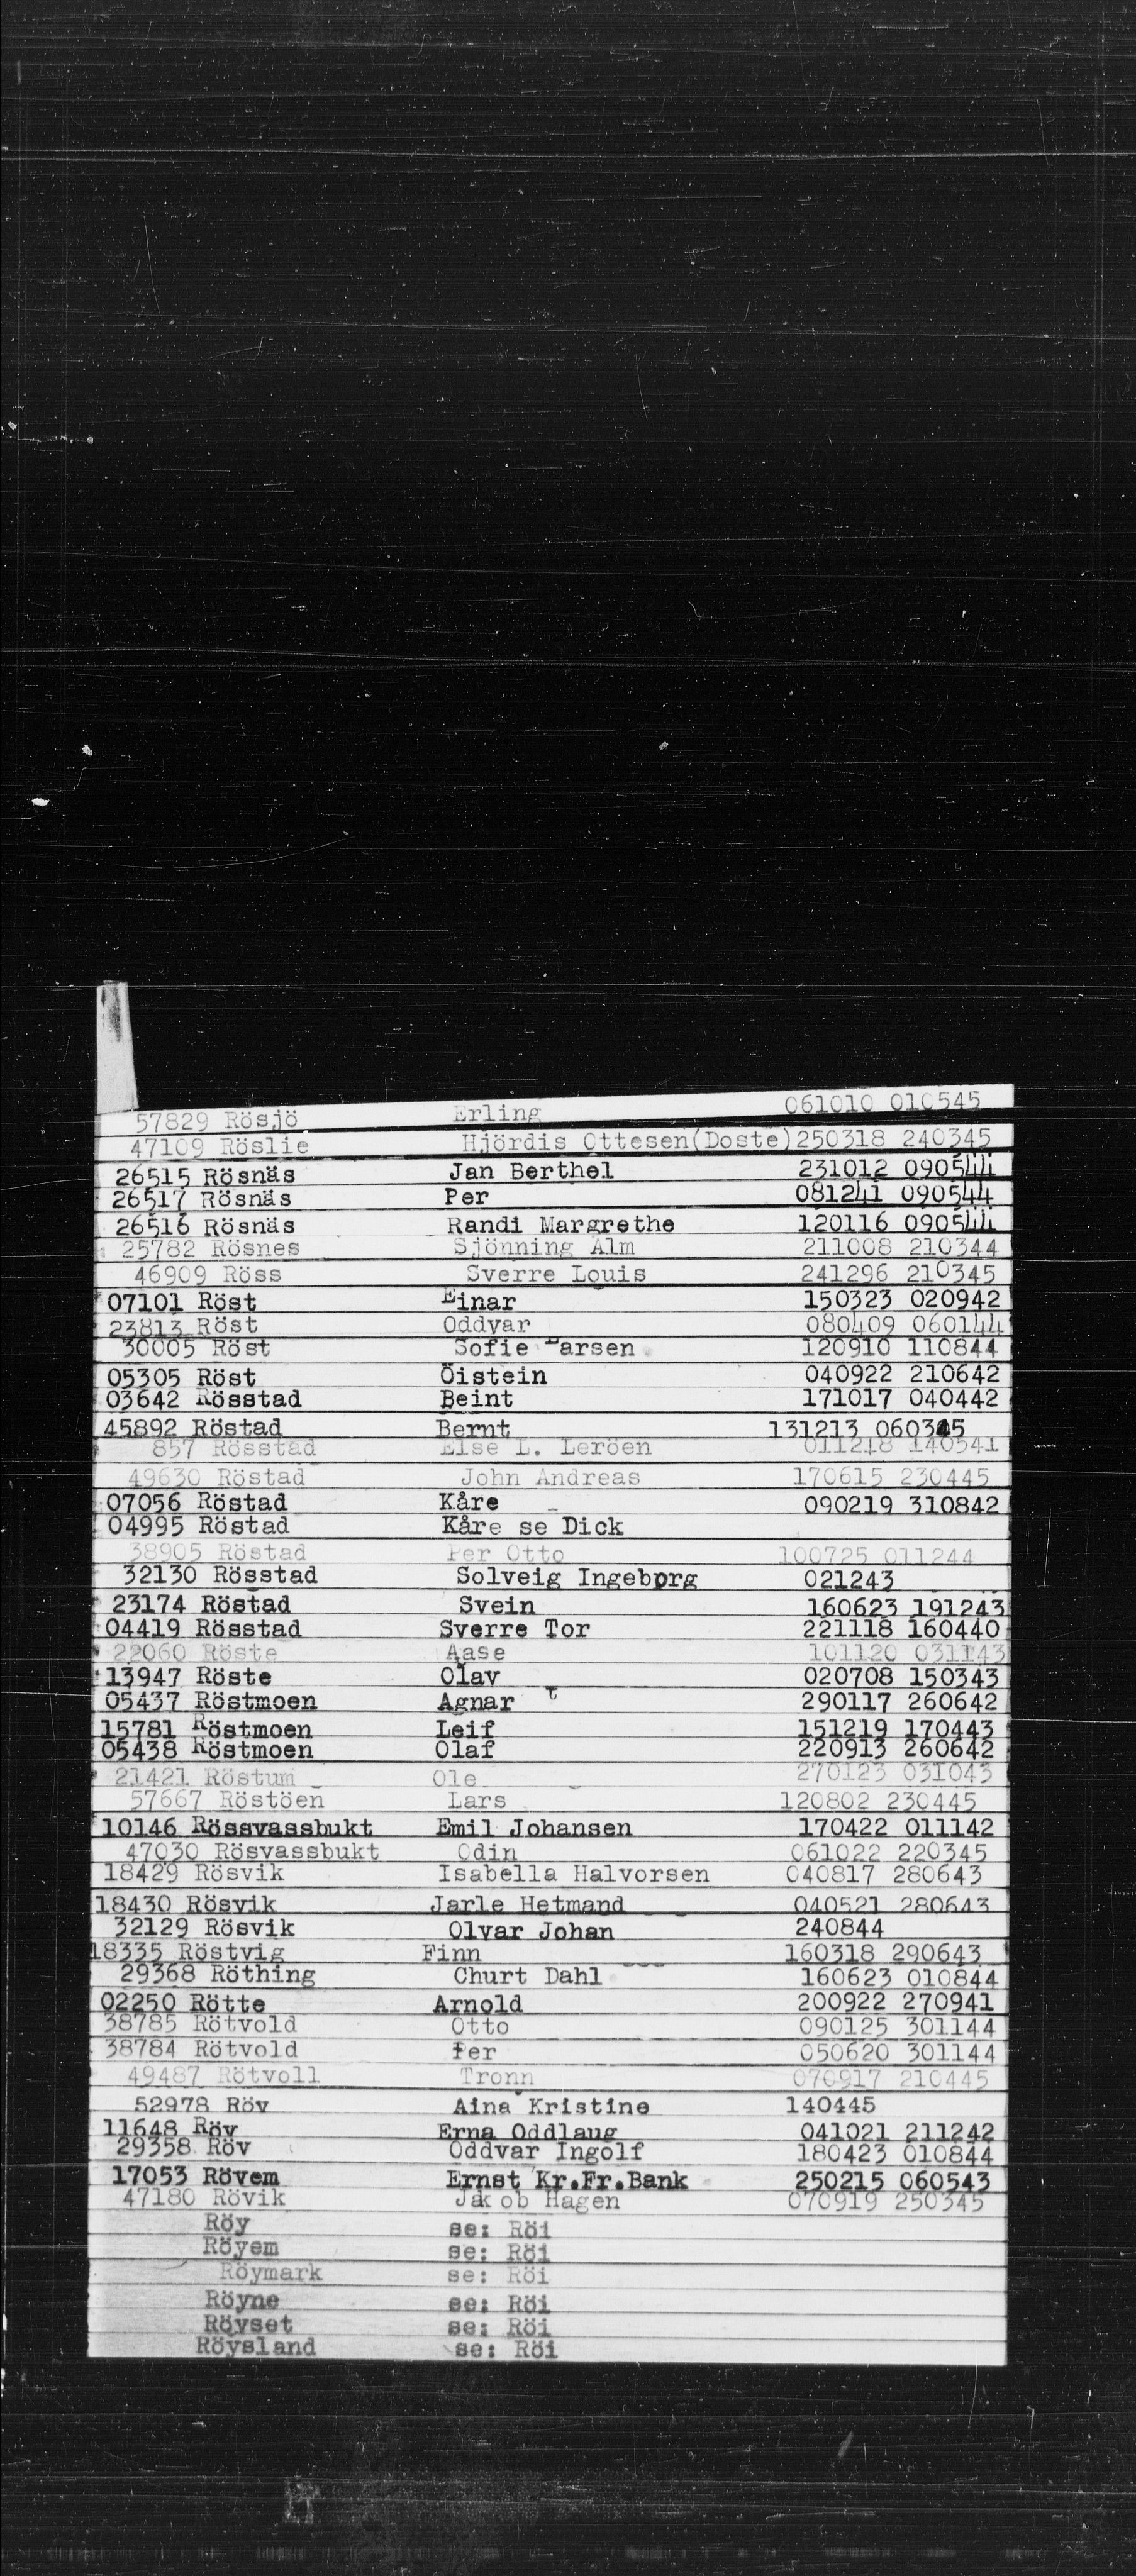 57829 Rösjö Erling 061010 010545
47109 Röslie Hjördis Ottesen(Doste)250318 240345
26515 Rösnäs Jan Berthel 231012 090544
26517 Rösnäs Per 081241 090544
26516 Rösnäs Randi Margrethe 120116 090544
25782 Rösnes Sjönning Alm 211008 210344
46909 Röss Sverre Louis 241296 210345
07101 Röst Einar 150323 020942
23813 Röst Oddvar 080409 060144
30005 Röst Sofie Larsen 120910 110844
05305 Röst Öistein 040922 210642
03642 Rösstad Beint 171017 040442
45892 Röstad Bernt 131213 060345
857 Rösstad Else L. Leröen 011218 140541
49630 Röstad John Andreas 170615 230445
07056 Röstad Kåre 090219 310842
04995 Röstad Kåre se Dick
38905 Röstad Per Otto 100725 011244
32130 Rösstad Solveig Ingeborg 021243
23174 Röstad Svein 160623 191243
04419 Rösstad Sverre Tor 221118 160440
22060 Röste Aase 101120 031143
13947 Röste Olav 020708 150343
05437 Röstmoen Agnar t 290117 260642
15781 Röstmoen Leif 151219 170443
05438 Röstmoen Olaf 220913 260642
21421 Röstum Ole 270123 031043
57667 Röstöen Lars 120802 230445
10146 Rössvassbukt Emil Johansen 170422 011142
47030 Rösvassbukt Odin 061022 220345
18429 Rösvik Isabella Halvorsen 040817 280643
18430 Rösvik Jarle Hetmand 040521 280643
32129 Rösvik Olvar Johan 240844
18335 Röstvig Finn 160318 290643
29368 Röthing Churt Dahl 160623 010844
02250 Rötte Arnold 200922 270941
38785 Rötvold Otto 090125 301144
38784 Rötvold Per 050620 301144
49487 Rötvoll Tronn 070917 210445
52978 Röv Aina Kristine 140445
11648 Röv Erna Oddlaug 041021 211242
29358 Röv Oddvar Ingolf 180423 010844
17053 Rövem Ernst Kr.Fr.Bank 250215 060543
47180 Rövik Jakob Hagen 070919 250345
Röy se: Röi
Röyem se: Röi
Röymark se: Röi
Röyne se: Röi
Röyset se: Röi
Röysland se: Röi